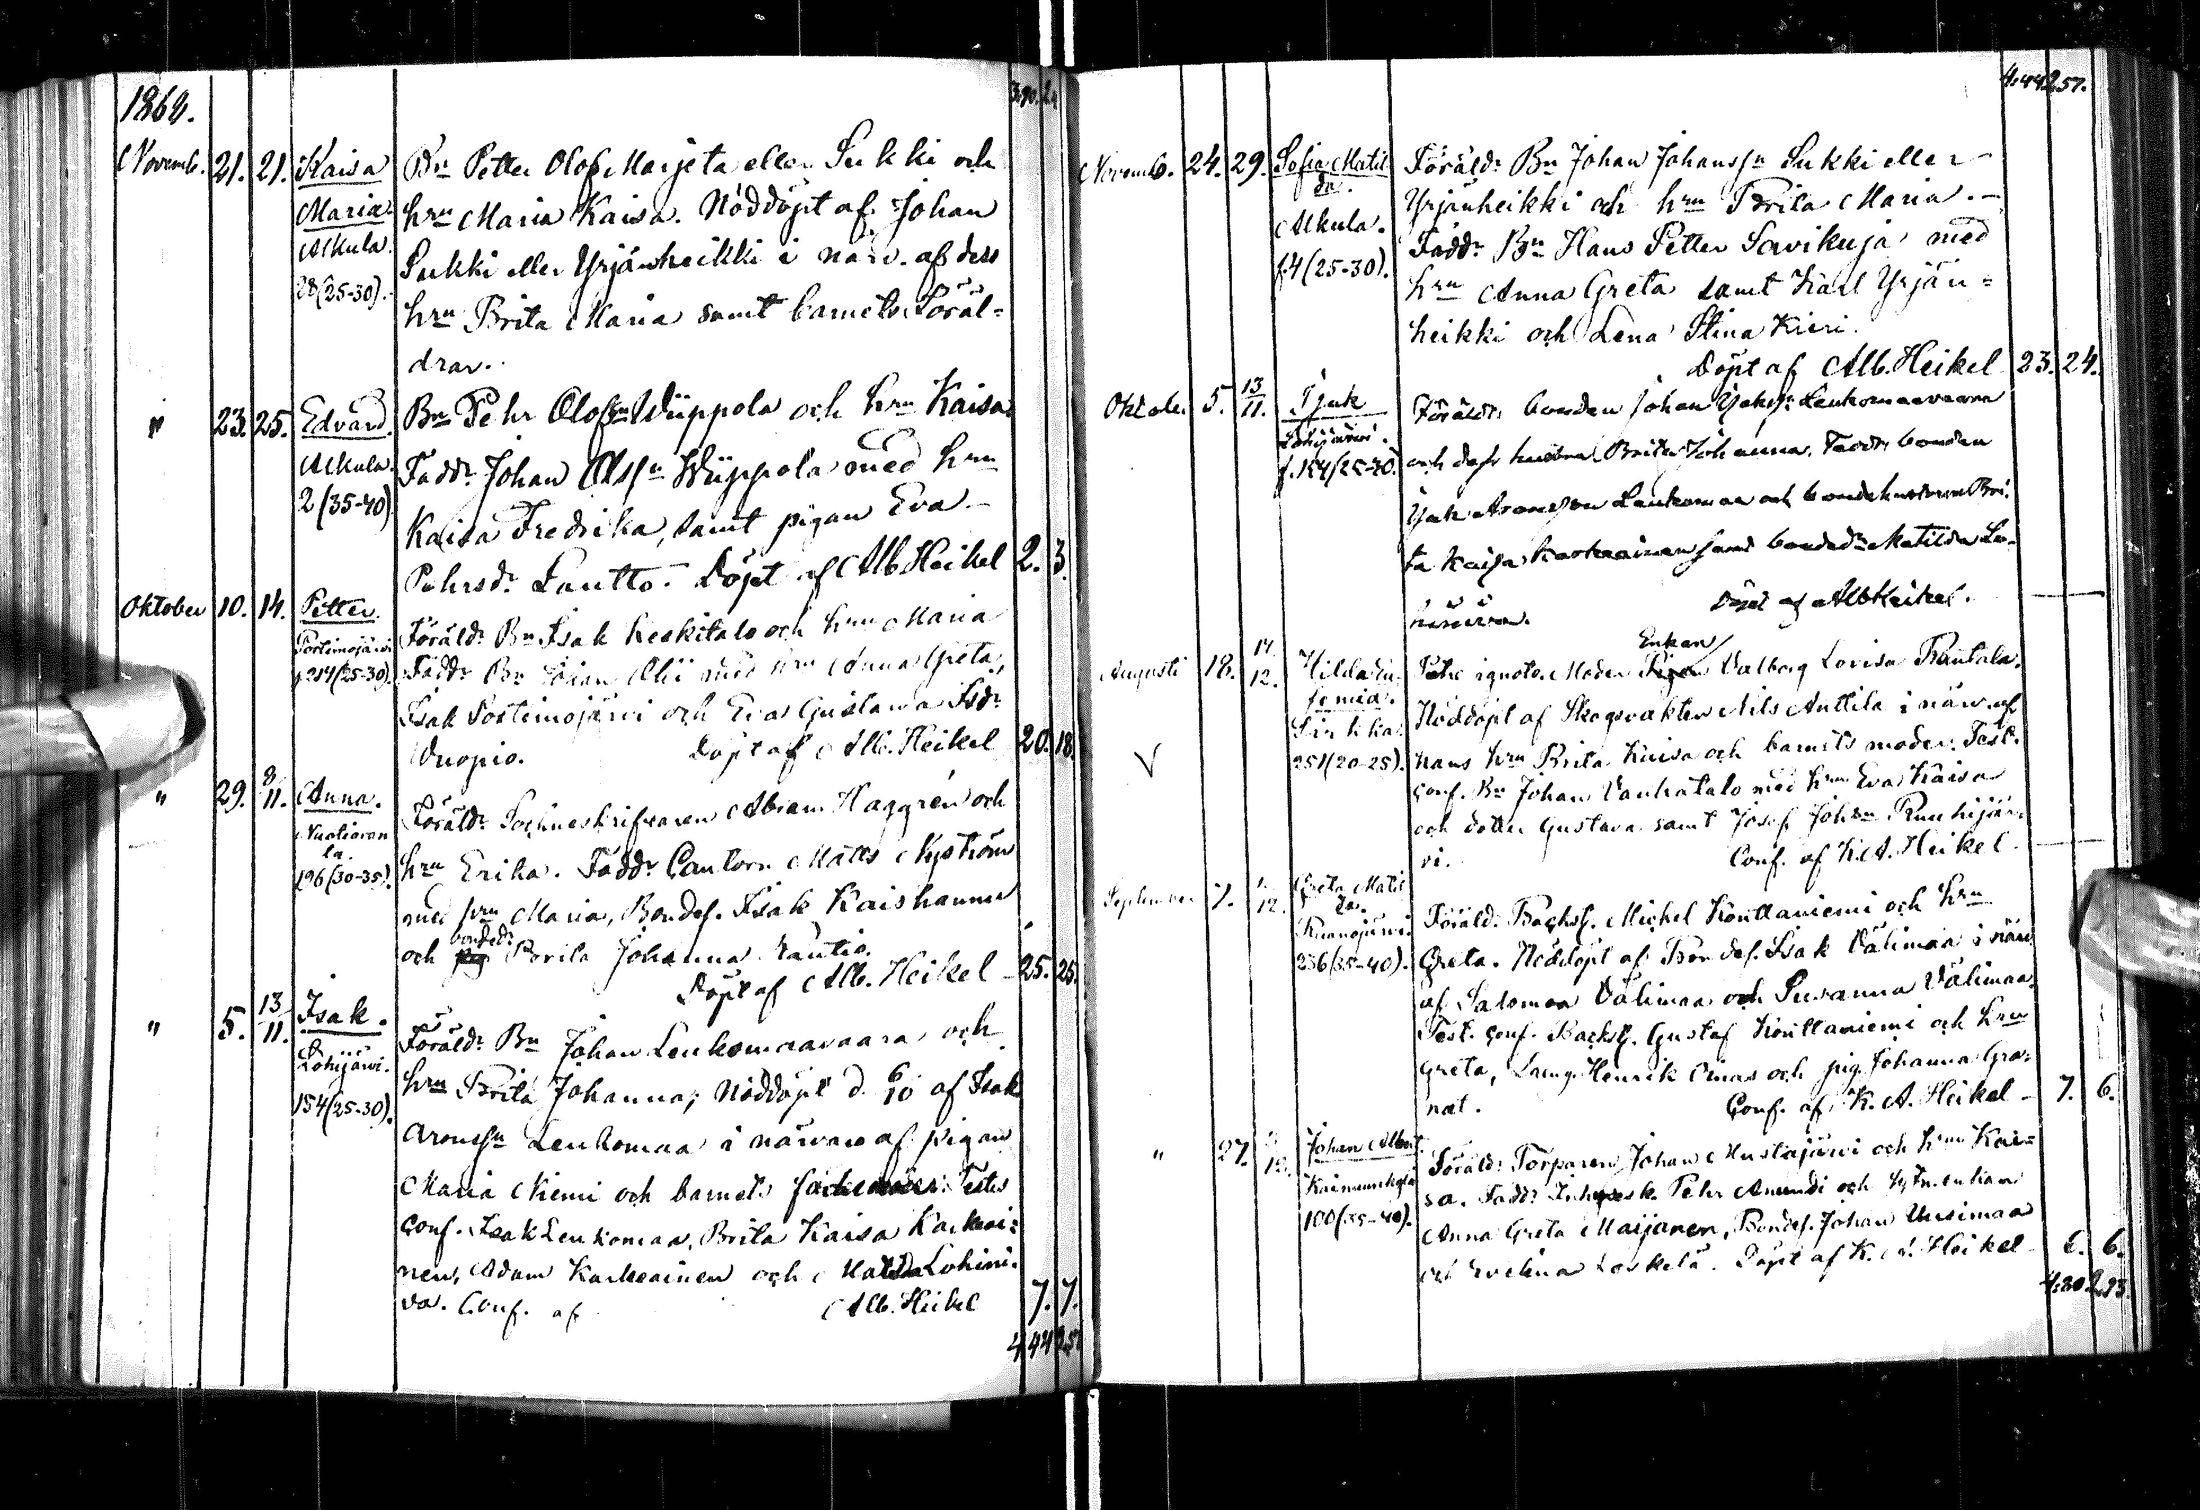 1864.
Novemb. 21. 21. Kaisa Maria. Alkula. 28 (25-30).
Bn Petter Olof Marjeta eller Sukki och
hrn Maria Kaisa. Nöddöpt af Johan
Sukki eller Yrjänheikki i närv. af dess
hrn Brita Maria samt barnets Föräl=
drar.
" 23. 25. Edvard. Alkula. 2 (35-40)
Bn Pehr Olofsn Wiippola och hrn Kaisa
Fadd. Johan Olssn Wiippola med hrn
Kaisa Fredrika, samt pigan Eva
Pehrsdr Lantto. Döpt af Alb Heikel 2. 3.
Oktober 10. 14. Petter. Portimojärvi 214 (25-30).
Föräldr Bn Isak Keskitalo och hrn Maria
Faddr Bn Johan Olli med hrn Anna Greta,
Isak Portimojärvi och Eva Gustava Isdr
Vuopio. Döpt af Alb. Heikel 20. 18.
" 29. 8/11. Anna. 196 (30-35).
Föräldr Sockneskrifvaren Abram Haggrén och
hrn Erika. Faddr Cantorn Matts Nyström
med hrn Maria, Bondes. Isak Kaishannu
bonded.
och Brita Johanna Rautio.
Döpt af Alb. Heikel 25. 25.
" 5. 13/11. Isak. Lohijärvi. 154 (25-30).
Föräldr Bn Johan Leukomaavaara och
hrn Brita Johanna; Nöddöpt d. 6/10 af Isak
Aronssn Leukomaa i närvaro af pigan
Maria Niemi och barnets Testes
Conf. Isak Leukomaa, Brita Kaisa Karkiai=
nen, Adam Karkiainen och Matilda Lohini=
va. Conf. af Alb. Heikel 7. 7.
4,44 257
4,44 257.
Novemb. 24. 29. Sofia Matil-
da. Alkula. f. 4 (25-30).
Föräldr Bn Johan Johanssn Sukki eller
Yrjänheikki och hrn Brita Maria.
Faddr Bn Hans Petter Savikuja med
hrn Anna Greta samt Karl Yrjän=
heikki och Lena Stina Kieri.
Döpt af Alb. Heikel 23. 24.
Oktober 5. 13/11. Isak Lohijärvi. f. 154 (25-30).
Föräldr bonden Johan Leukomaavaara
och dess hustru Brita Johanna. Faddr bonden
Isak Aronsson Leukomaa och bondehustrun Bri-
ta Kaisa Karkiainen samt bondedr Matilda Lo-
hiniva. Döpt af Alb Heikel.
Augusti 18. 14/12. Hilda Eu-
femia. Sirkka 251 (20-25).
Enkan
Pater ignotus. Moder Valborg Lovisa Rantala.
Nöddöpt af Skogsvakten Nils Anttila i närv. af
V
hans hrn Brita Kaisa och barnets moder. Test.
Conf. Bn Johan Vanhatalo med hrn Eva Kaisa
och dotter Gustava samt Josef Johsn Ruuhijär-
vi. Conf. af K. A. Heikel
September 7. Greta Matil-
da. 236 (35-40).
Föräld. Backst. Michel Konttaniemi och hrn
Greta. Nöddöpt af Bondes. Isak Välimaa i närv
af Salomon Välimaa och Susanna Välimaa.
Test. Conf. Backst. Gustaf Konttaniemi och hrn
Greta, Henrik Oinas och pig. Johanna Gra-
nat. Conf. af K. A. Heikel 7. 6.
" 27. Johan Albert. 100 (35-40).
Föräldr Torparen Johan Mustajärvi och hrn Kai=
sa. Faddr Pehr Amundi och enkan
Anna Greta Maijanen, Bondes. Johan Uusimaa
och Evelina Koskela. Döpt af K. A. Heikel 6. 6.
4,80 293.